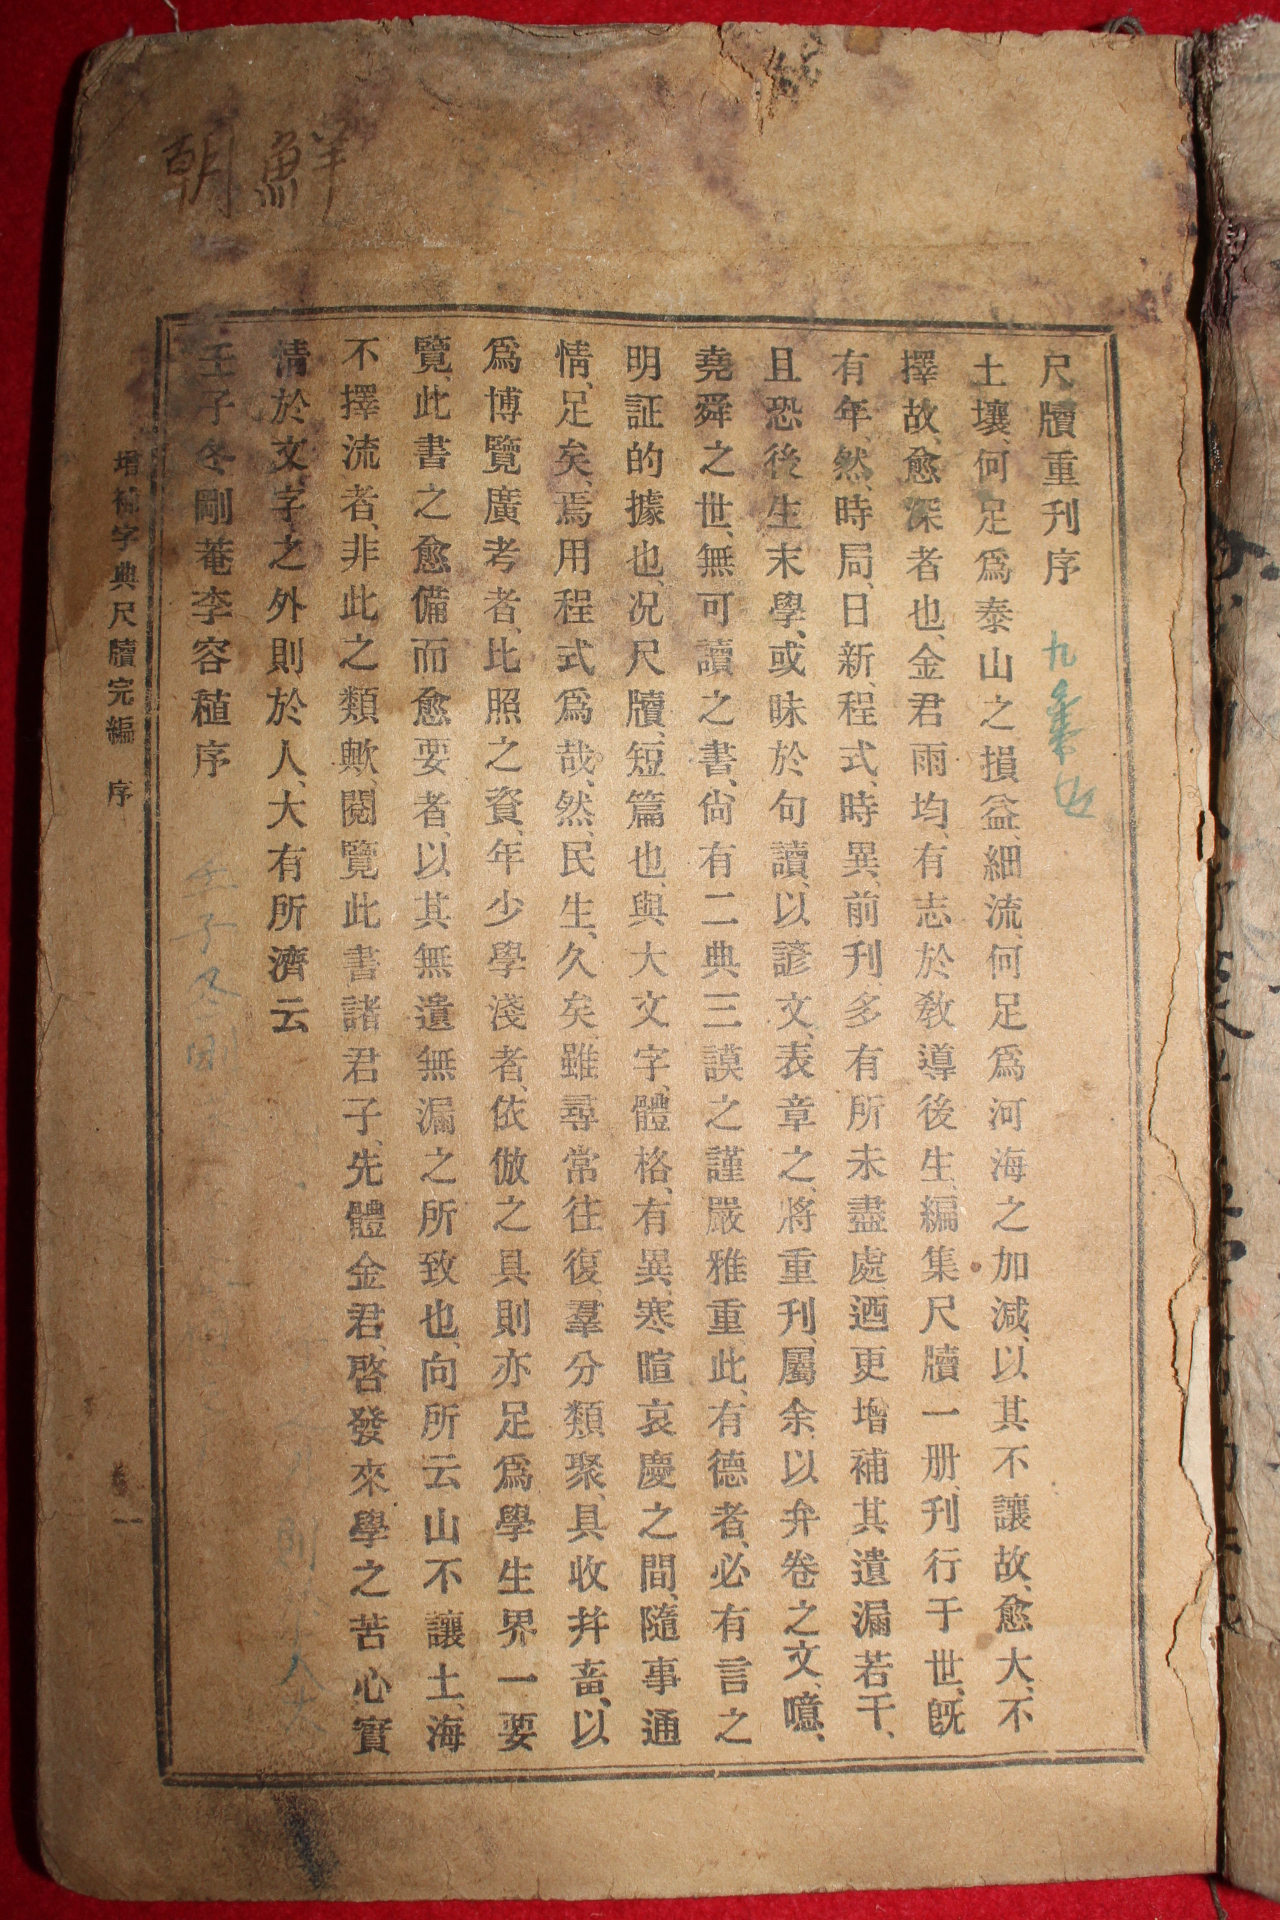 朝鮮
尺牘重刊序
土壤、何足爲泰山之損益、細流、何足爲河海之加減、以其不讓故、愈大、不
擇故、愈深者也、金君雨均、有志於敎導後生、編集尺牘一册、刊行于世、旣
有年、然、時局、日新、程式、時異、前刊、多有所未盡處迺更增補其遺漏若干、
且恐後生末學、或昧於句讀、以諺文、表章之、將重刊、屬余、以弁卷之文、噫、
堯舜之世、無可讀之書、尙有二典三謨之謹嚴雅重此、有德者、必有言之
明証的據也、况尺牘、短篇也、與大文字、體格、有異、寒暄哀慶之間、隨事通
情、足矣、焉用程式爲哉、然、民生、久矣、雖尋常往復、羣分類聚、具收幷畜、以
爲博覽廣考者、比照之資、年少學淺者、依倣之具則亦足爲學生界一要
覽、此書之愈備而愈要者、以其無遺無漏之所致也、向所云山不讓土、海
不擇流者、非此之類歟、閱覽此書諸君子、先體金君、啓發來學之苦心實
情於文、字之外則於人、大有所濟云
壬子冬剛菴李容稙序
增補字典尺牘完編 序
卷一